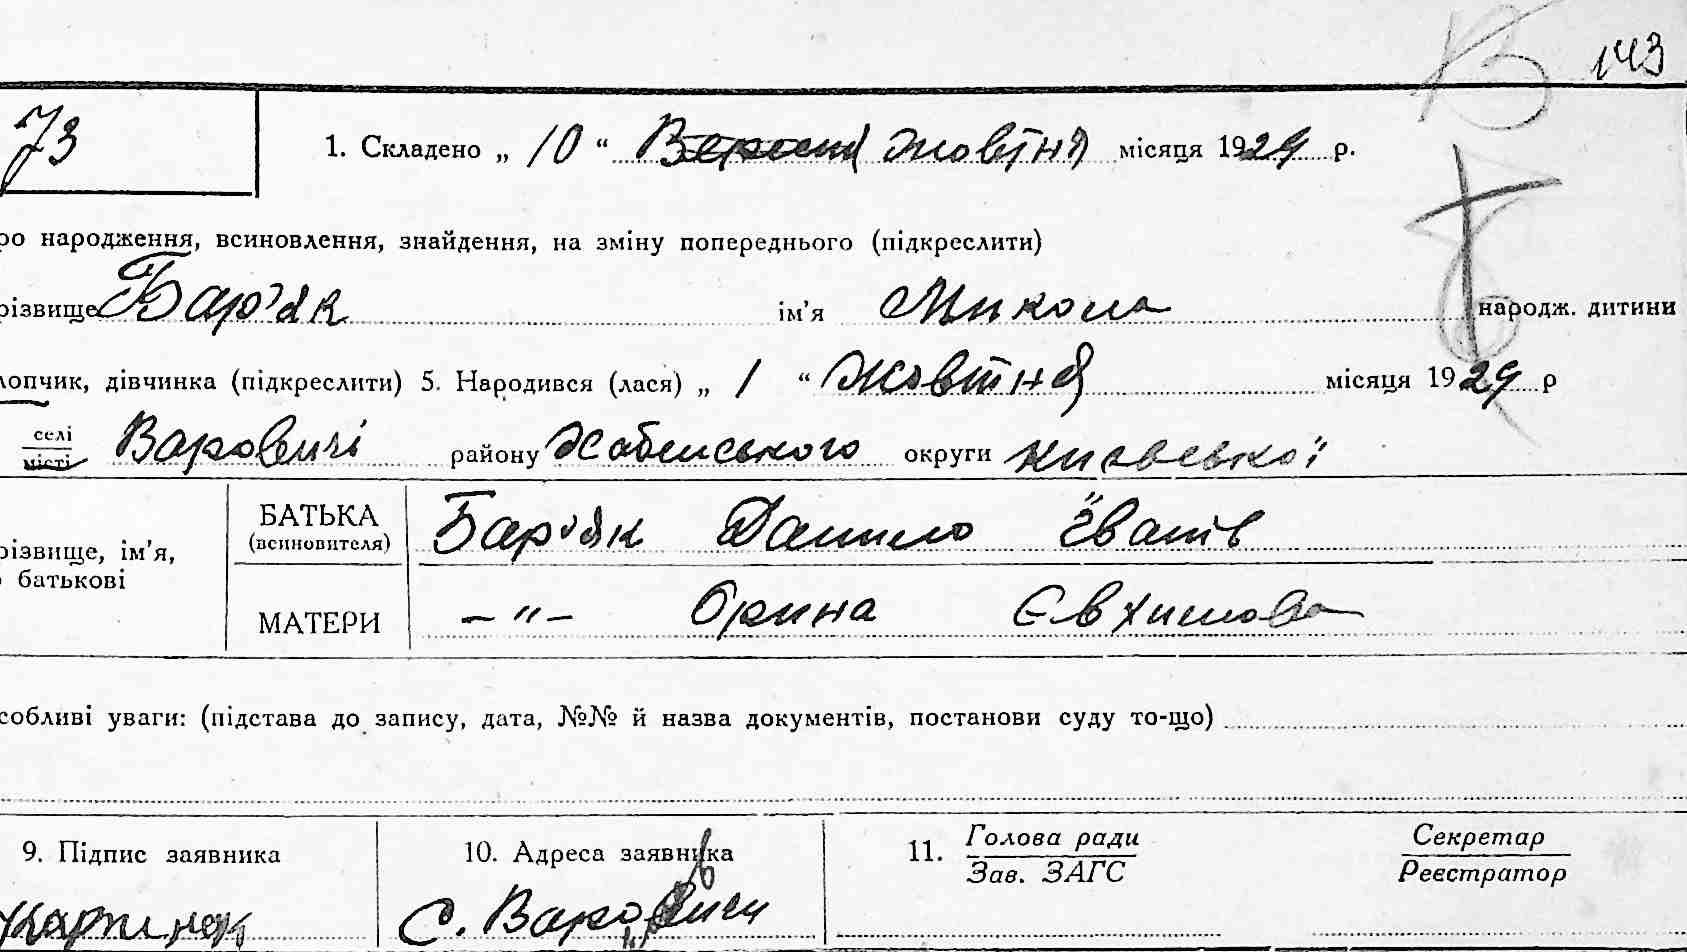 143
73 1. Складено „ 10 “ Вересня Жовтня місяця 1929 р.
ро народження, всиновлення, знайдення, на зміну попереднього (підкреслити)
різвище Бар'як ім'я Микола народж. дитини
лопчик, дівчинка (підкреслити) 5. Народився (лася) „ 1 “ Жовтня місяця 1929 р
селі
місті Варовичі району Хабенського округи Київської
різвище, ім'я,
батькові
БАТЬКА
(всиновителя) Бар'як Данило
МАТЕРИ — " — Орина Євхимова
собливі уваги: (підстава до запису, дата, №№ й назва документів, постанови суду то-що)
9. Підпис заявника 10. Адреса заявника 11. Голова ради Секретар
Зав. ЗАГС Реєстратор
с. Варовичи